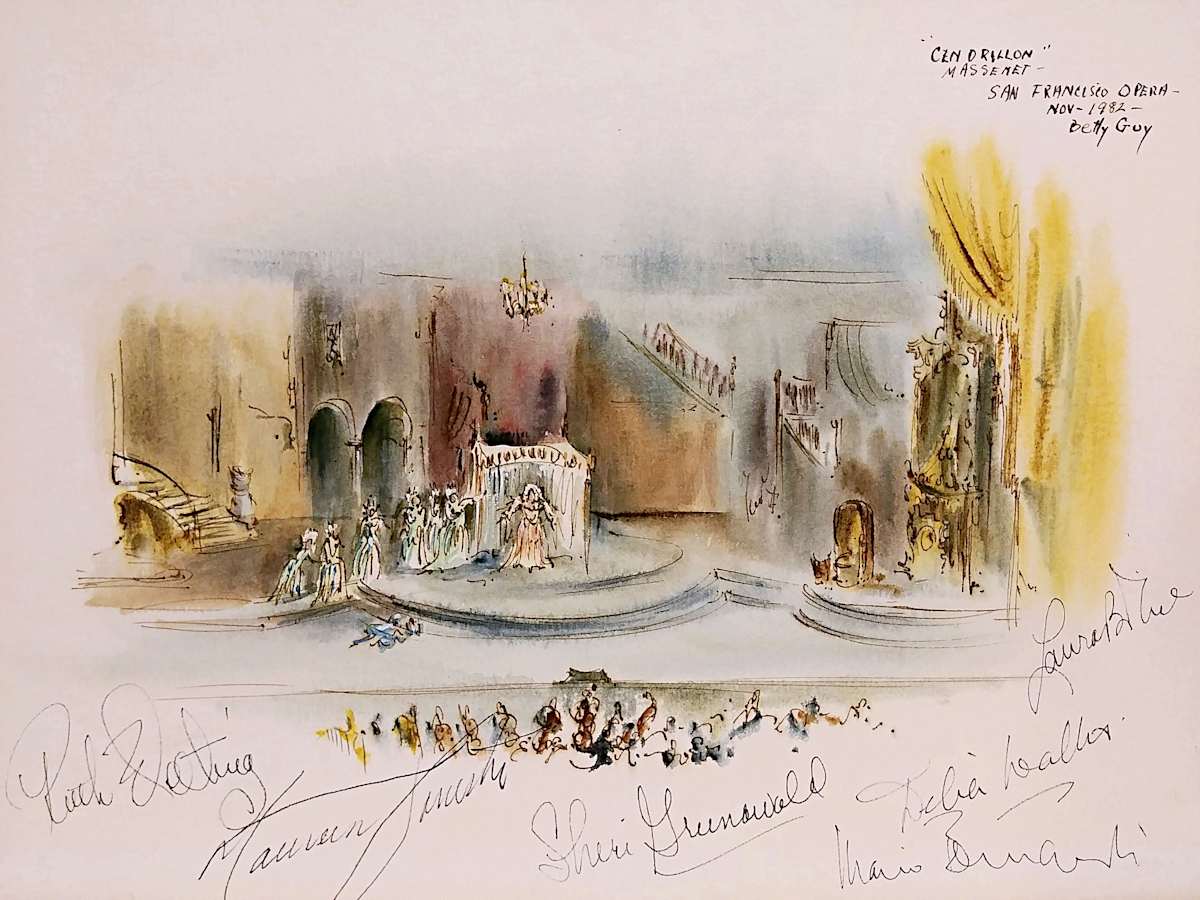 "CENDRILLON"
MASSENET -
SAN FRANCISCO OPERA -
NOV - 1982 -
Betty Guy
Laura
Ruth Welting
Maureen
Sheri Greenawald
Delia Wallis
Mario Bernardi